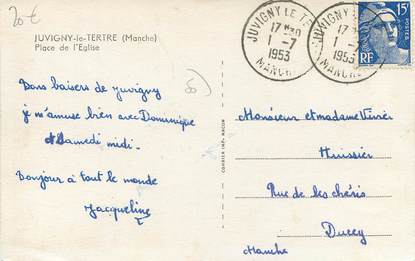 20€
JUVIGNY-le-TERTRE (Manche)
Place de l'Eglise
JUVIGNY LE T
17 H30
1 -7
1953
MANCHE
JUVIGNY
17
1 -7
1953
MANCHE
15F
POSTES
RF
Bons baisers de Juvigny
je m'amuse bien avec Dominique
A Samedi midi.
Bonjour à tout le monde
Jacqueline
COMBIER IMP. MACON
Monsieur et madame
Huissier
Rue de les chéris
Ducey
Manche